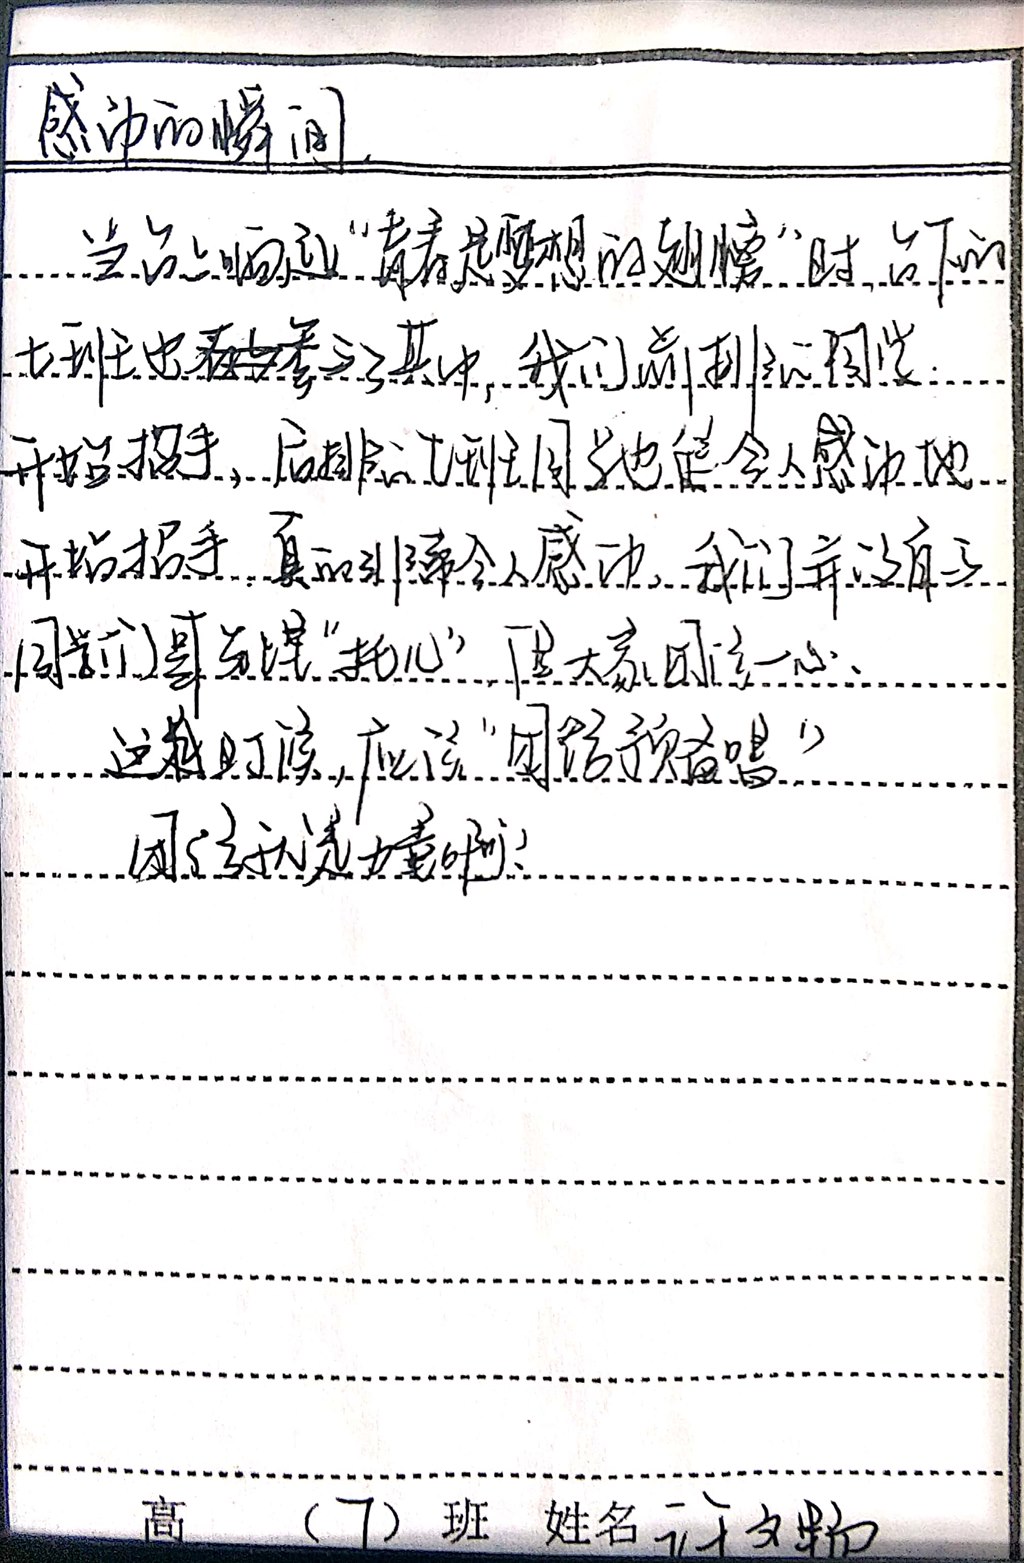 感动的瞬间.
当台上响起“青春是梦想的翅膀”时,台下的
七班也参与了其中,我们前排的同学
开始招手,后排的七班同学也令人感动地
开始招手.真的非常令人感动,我们并没有与
同学们事先谋“托儿”,但大家团结一心.
这种时候,应该“团结预备唱”
团结就是力量啊!
高 (7) 班 姓名 许文